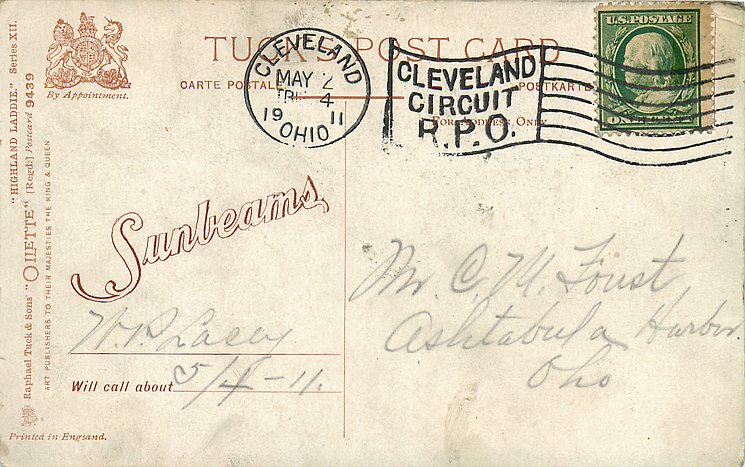 TUCK'S POST CARD
CARTE POSTALE
POSTKARTE
FOR ADDRESS ONLY
By Appointment.
CLEVELAND
MAY 2
4
19 11
OHIO
CLEVELAND
CIRCUIT
R.P.O.
U.S. POSTAGE
"HIGHLAND LADDIE." Series XII.
Raphael Tuck & Sons' "OILETTE" [Regd.] Postcard 9439
ART PUBLISHERS TO THEIR MAJESTIES THE KING & QUEEN
Sunbeams
W. P. Lacey
Will call about 5/4-11.
Mr. C. M. Foust
Ashtabula Harbor
Ohio
Printed in England.